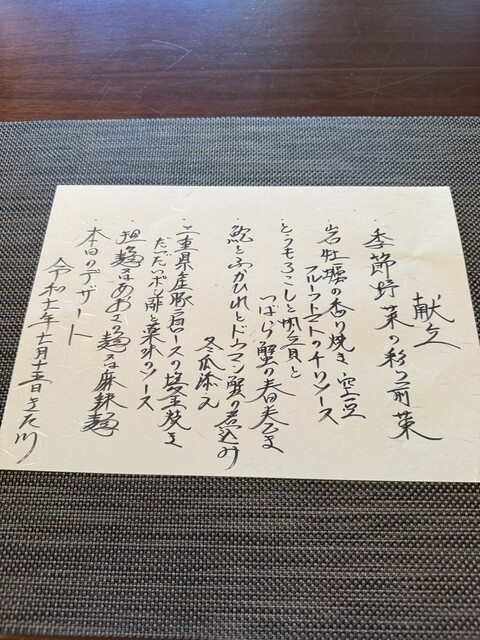 献立
・季節野菜の彩り前菜
・岩牡蠣の香り焼き 空豆
フルーツトマトのチリソース
・とうもろこしと帆立貝と
つばら蟹の春巻
・鮑とふかひれとドウマン蟹の煮込み
冬瓜添え
・三重県産豚肩ロースの塩釜焼き
だいだいポン酢 薬味のソース
・担々麺又はあおさ麺又は麻辣麺
・本日のデザート
令和七年七月十五日 きた川